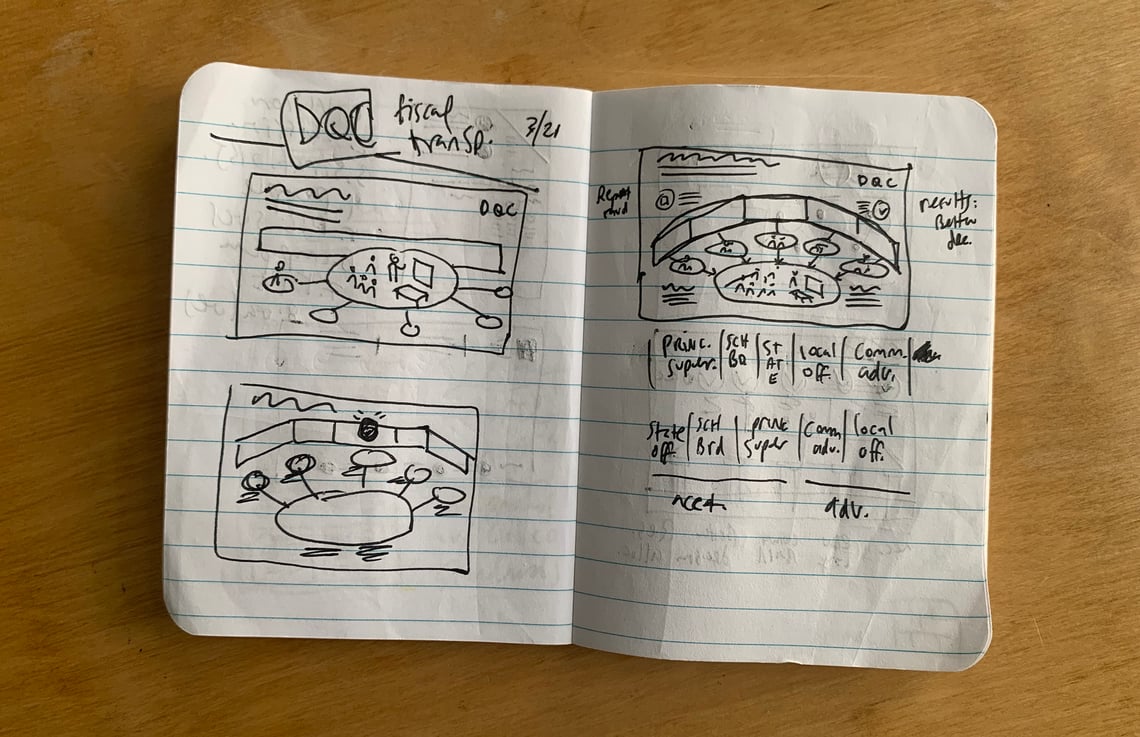 DQC
fiscal
transp.
3/21
DQC
DQC
results:
Better
dec.
princ.
super.
SCH
BD
ST
AT
E
local
off.
Comm.
adv.
State
off.
SCH
Brd
princ
super
Comm
adv.
local
off.
adv.